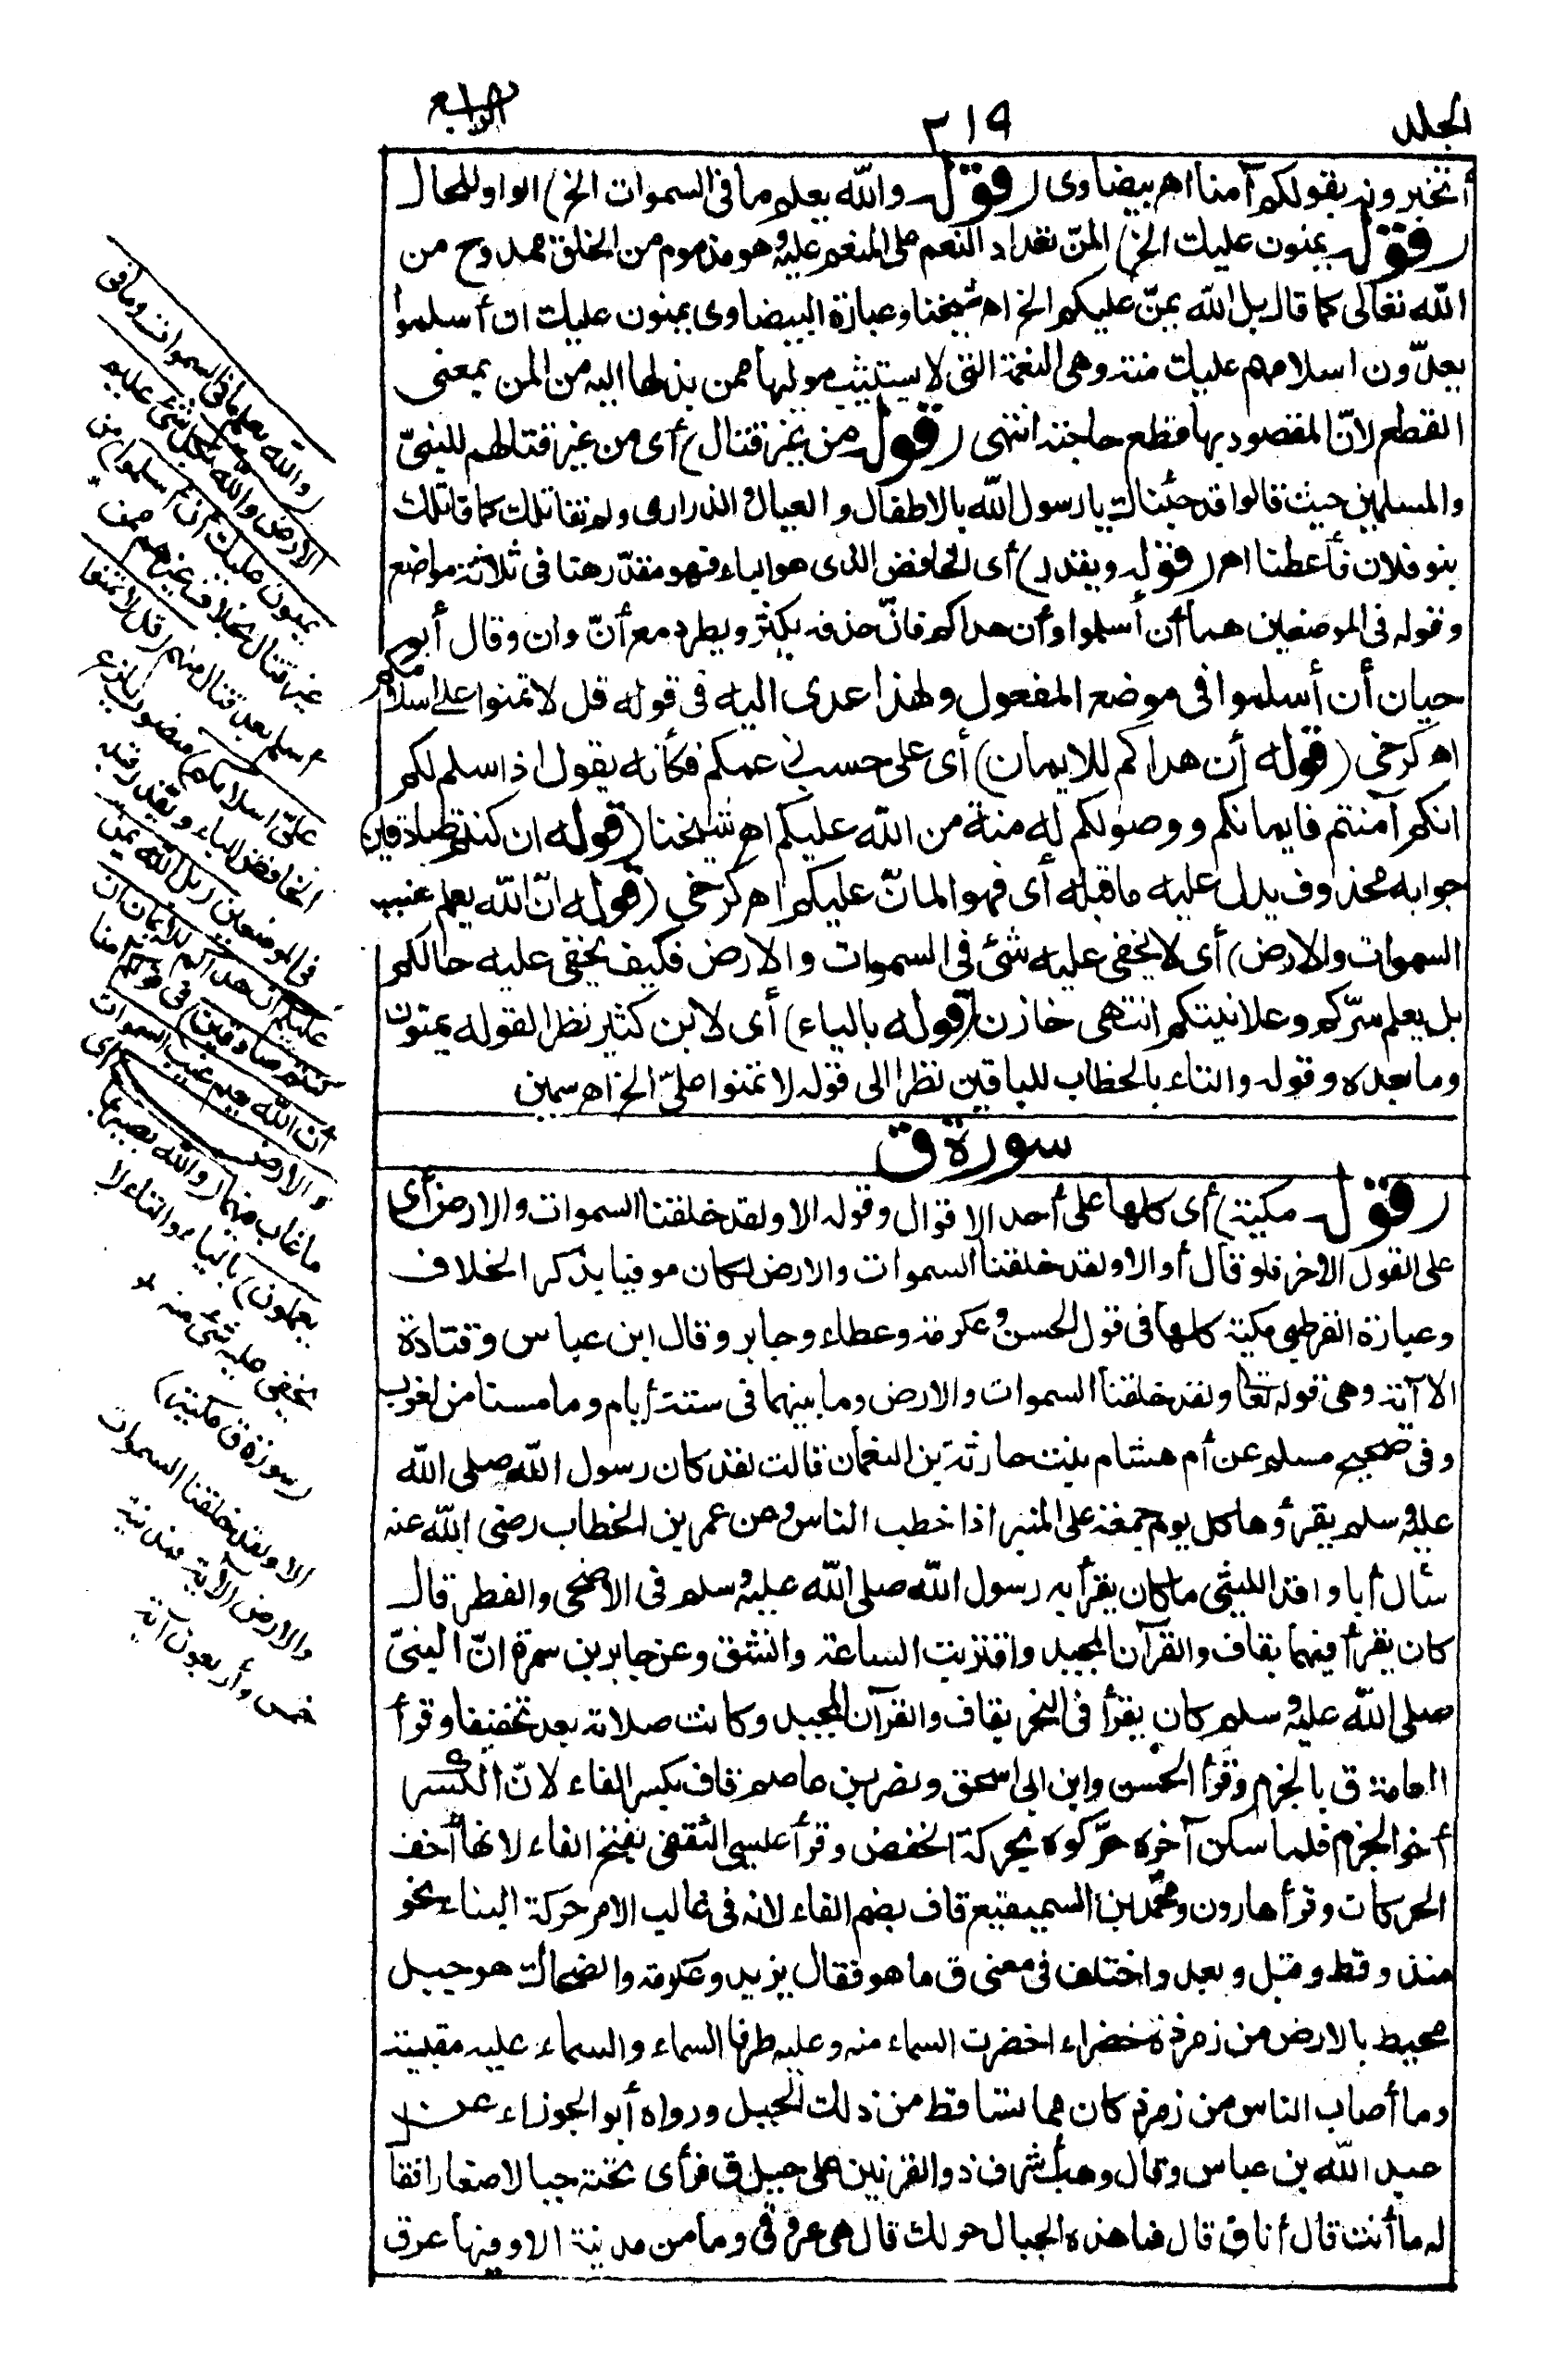 الجلد
٢١٩
الرابع
أتخبرونه بقولكم آمنا اهـ بيضاوى (قوله والله يعلم ما فى السموات الخ) الواو للحال
(قوله يمنون عليك الخ) المنّ تعداد النعم على المنعم عليه وهو مذموم من الخلق ممدوح من
الله تعالى كما قال بل الله يمنّ عليكم الخ اهـ شيخنا وعبارة البيضاوى يمنون عليك ان أسلموا
يعدّون اسلامهم عليك منة وهى النعمة التى لا يستثيب موليها ممن بذلها اليه من المن بمعنى
القطع لانّ المقصود بها قطع حاجته انتهى (قوله من غير قتال) أى من غير قتالهم للنبىّ
والمسلمين حيث قالوا قد جئناك يا رسول الله بالاطفال والعيال والذرارى ولم نقاتلك كما قاتلك
بنو فلان فأعطنا اهـ (قوله ويقدر) أى الخافض الذى هو الباء فهو مقدّر هنا فى ثلاثة مواضع
وقوله فى الموضعين هما أن أسلموا وأن هداكم فانّ حذفه يكثر ويطرد مع أنّ وان وقال أبو
حيان أن أسلموا فى موضع المفعول ولهذا عدى اليه فى قوله قل لا تمنوا على اسلامكم
اهـ كرخى (قوله أن هداكم للايمان) أى على حسب زعمكم فكأنه يقول اذا سلم لكم
انكم آمنتم فايمانكم ووصولكم له منة من الله عليكم اهـ شيخنا (قوله ان كنتم صادقين)
جوابه محذوف يدل عليه ما قبله أى فهو المانّ عليكم اهـ كرخى (قوله انّ الله يعلم غيب
السموات والارض) أى لا يخفى عليه شئ فى السموات والارض فكيف يخفى عليه حالكم
بل يعلم سرّكم وعلانيتكم انتهى خازن (قوله بالياء) أى لابن كثير نظرا لقوله يمنون
وما بعده وقوله والتاء بالخطاب للباقين نظرا الى قوله لا تمنوا علىّ الخ اهـ سمين
سورة ق
(قوله مكية) أى كلها على أحد الاقوال وقوله الا ولقد خلقنا السموات والارض أى
على القول الآخر فلو قال أو الا ولقد خلقنا السموات والارض لكان موفيا بذكر الخلاف
وعبارة القرطبى مكية كلها فى قول الحسن وعكرمة وعطاء وجابر وقال ابن عباس وقتادة
الا آية وهى قوله تعا ولقد خلقنا السموات والارض وما بينهما فى ستة أيام وما مسنا من لغوب
وفى صحيح مسلم عن أم هشام بنت حارثة بن النعمان قالت لقد كان رسول الله صلى الله
عليه وسلم يقرأوها كل يوم جمعة على المنبر اذا خطب الناس وعن عمر بن الخطاب رضى الله عنه
سأل أبا واقد الليثى ما كان يقرأ به رسول الله صلى الله عليه وسلم فى الاضحى والفطر قال
كان يقرأ فيهما بقاف والقرآن المجيد واقتربت الساعة وانشق وعن جابر بن سمرة انّ النبىّ
صلى الله عليه وسلم كان يقرأ فى الفجر بقاف والقرآن المجيد وكانت صلاته بعد تخفيفا وقرأ
العامة ق بالجزم وقرأ الحسن وابن ابى اسحق ونصر بن عاصم قاف بكسر الفاء لانّ الكسر
أخو الجزم فلما سكن آخره حرّكوه بحركة الخفض وقرأ عيسى الثقفى بفتح الفاء لانها أخف
الحركات وقرأ هارون ومحمد بن السميقيع قاف بضم الفاء لانه فى غالب الامر حركة البناء نحو
منذ وقط وقبل وبعد واختلف فى معنى ق ما هو فقال يزيد وعكرمة والضحاك هو جبل
محيط بالارض من زمردة خضراء اخضرت السماء منه وعليه طرفا السماء والسماء عليه مقببة
وما أصاب الناس من زمرد كان مما تساقط من ذلك الجبل ورواه أبو الجوزاء عن
عبد الله بن عباس وقال وهب أشرف ذو القرنين على جبل ق فرأى تحته جبالا صغارا فقا
له ما أنت قال أنا ق قال فما هذه الجبال حولك قال هى عروقى وما من مدينة الا وفيها عرق
(والله يعلم ما فى السموات وما فى
الارض والله بكل شئ عليم
يمنون عليك أن أسلموا) من
غير قتال بخلاف غيرهم ممن
أسلم بعد قتال منهم (قل لا تمنوا
علىّ اسلامكم) منصوب بنزع
الخافض الباء ويقدر قبل أن
فى الموضعين (بل الله يمن
عليكم أن هداكم للايمان ان
كنتم صادقين) فى قولكم آمنا
(ان الله يعلم غيب السموات
والارض) أى
ما غاب فيهما (والله بصير بما
يعملون) بالياء والتاء لا
يخفى عليه شئ منه
(سورة ق مكية)
الا ولقد خلقنا السموات
والارض الآية فمدنية
خمس وأربعون آية